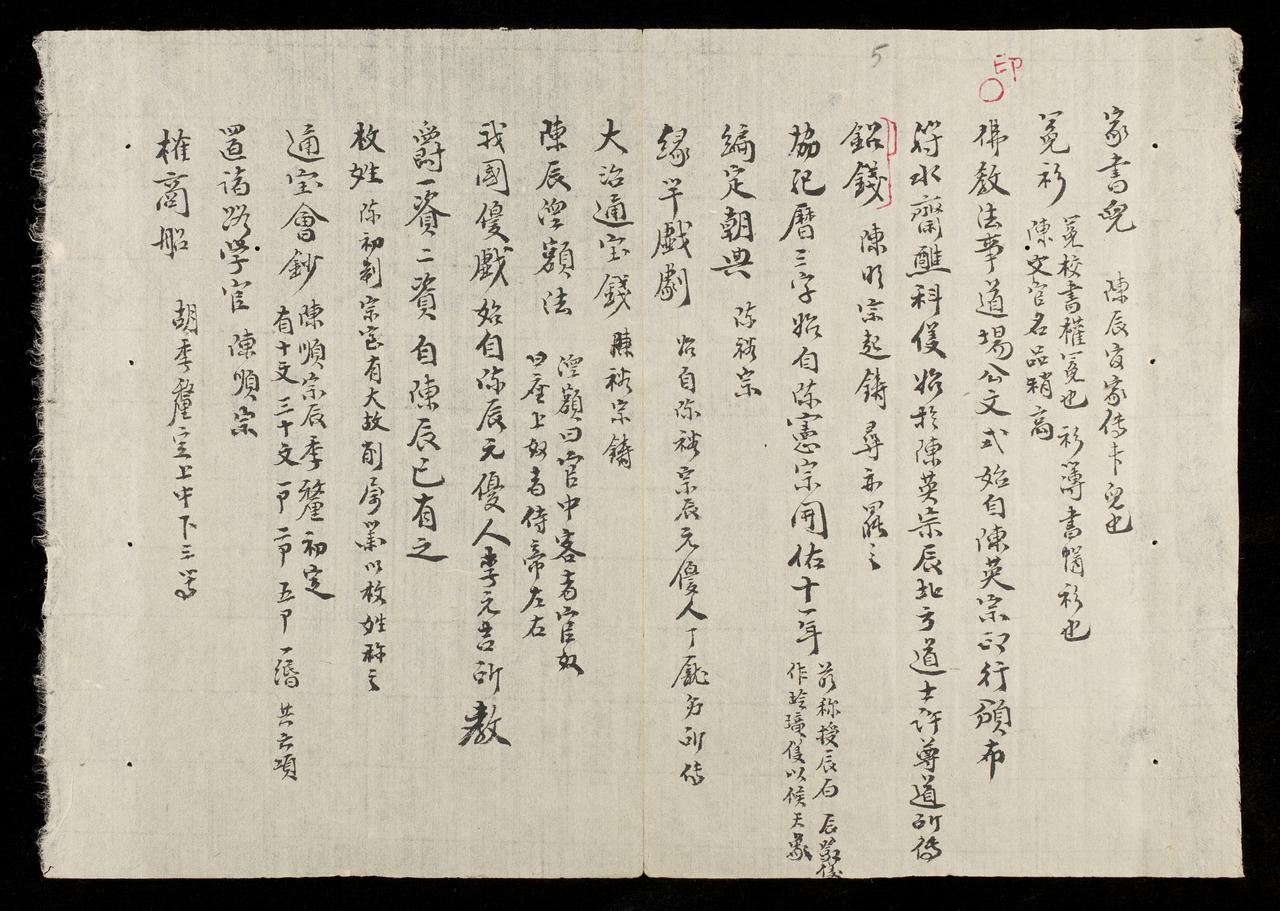 5
印
家書兒 陳辰
冕衫 冕校書權冕也 衫簿書幞衫也
陳文官名品稍高
佛教法事道場公文式始自陳英宗印行頒布
符水齋醮科儀始於陳英宗辰北方道士許尊道所傳
鉛錢 陳明宗起鑄尋亦罷之
協紀曆三字始自陈憲宗開佑十一年 前称授辰 辰
作玲瓏儀以候天象
編定朝典 陈裕宗
緣竿戲劇 始自陈裕宗辰元優人丁龐 所传
大治通宝錢 陳裕宗鑄
陳辰涅額法 涅額曰官中客者官奴
曰座上奴者侍帝左右
我國優戲始自陈辰元優人李元吉所教
爵一資二資自陳辰已有之
枚姓 陈初制宗室有大故削属籍以枚姓称之
通宝會鈔 陳順宗辰季犛初定
有十文三十文一卩二卩五卩一緡共六項
置諸路学官 陳順宗
榷商船 胡季犛定上中下三等